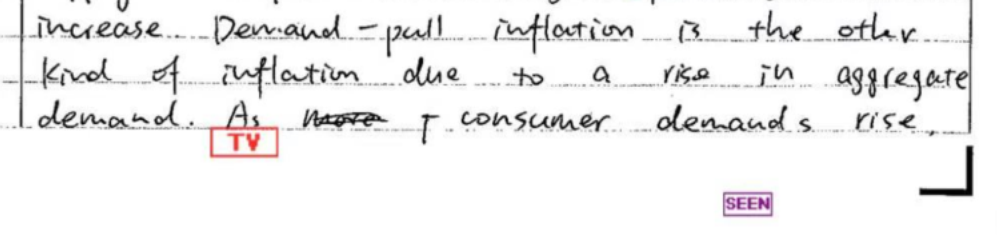 increase. Demand-pull inflation is the other
kind of inflation due to a rise in aggregate
demand. As more consumer demands rise,
TV
SEEN